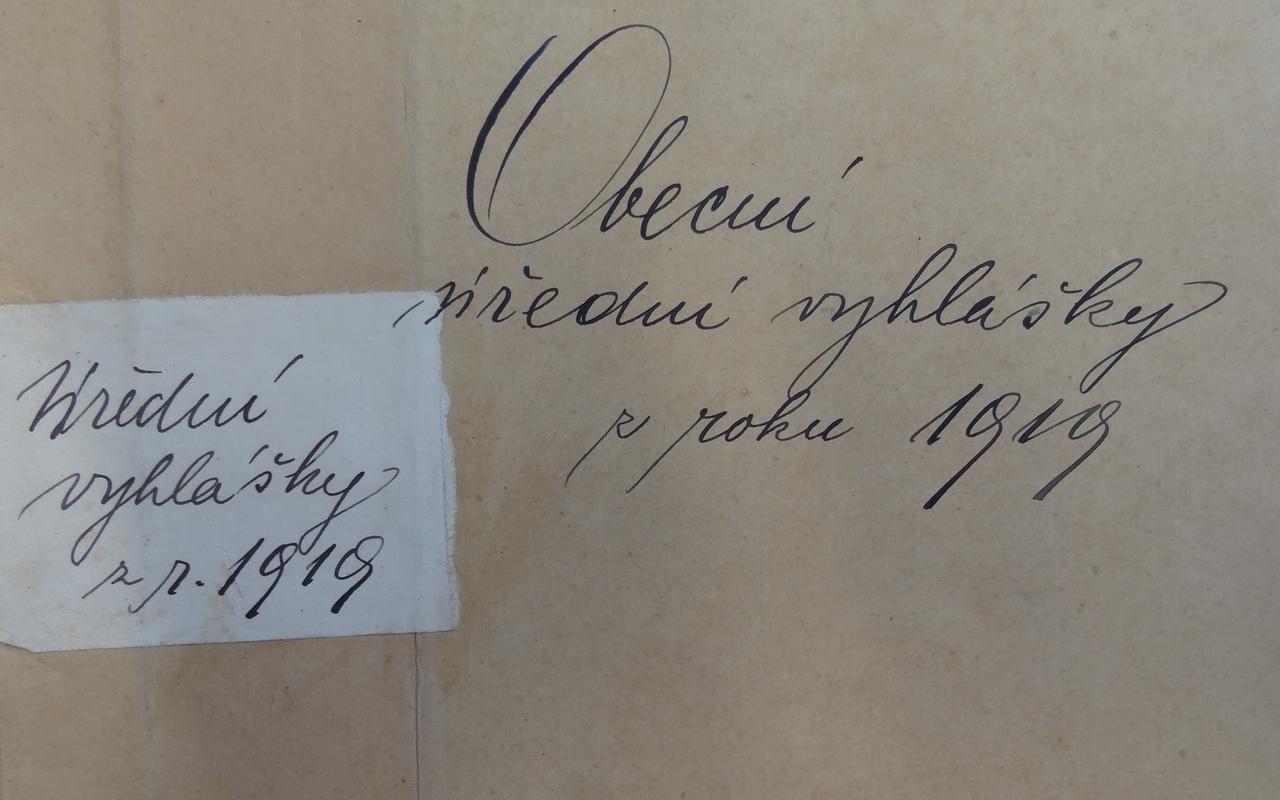 Obecní
úřední vyhlášky
z roku 1919
Úřední
vyhlášky
z r. 1919